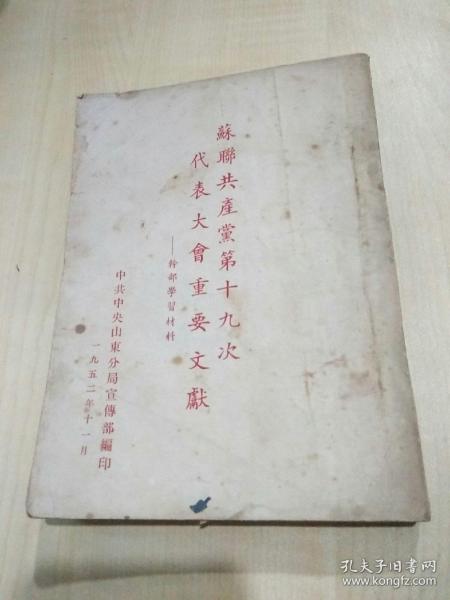 蘇聯共產黨第十九次
代表大會重要文獻
——幹部學習材料
中共中央山東分局宣傳部編印
一九五二年十一月
孔夫子旧书网
www.kongfz.com